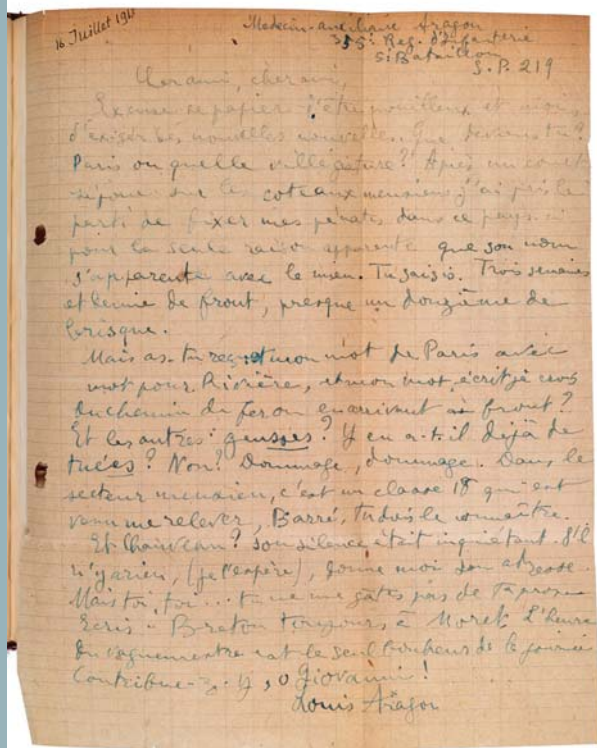 16 Juillet 191
Medecin-auxiliaire Aragon
355e Reg. d'Infanterie
5e Bataillon
S.P. 219
Cher ami, cher ami,
Excuse ce papier d'être pouilleux, et moi,
d'exiger des nouvelles . Que deviens tu?
Paris ou quelle villégiature? Après un court
séjour sur les coteaux meusiens j'ai pris le
parti de fixer mes pénates dans ce pays-ci
pour la seule raison apparente que son nom
s'apparente avec le mien. Tu saisis. Trois semaines
et demie de front, presque un douzième de
brisque.
Mais as-tu reçu et mon mot de Paris avec
mot pour Rivière, et mon mot écrit je crois
du chemin de fer on en arrivant au front?
Et les autres gensses? Y en a-t-il déjà de
tuées? Non? Dommage, dommage. Dans le
secteur meusien, c'est un classe 18 qui est
venu me relever, Barré, tu dois le connaître.
Et Chauveau? son silence était inquiétant. S'il
n'y a rien, (je l'espère), donne moi son adresse.
Mais toi, toi... tu ne me gâtes pas de ta prose
Ecris - Breton toujours à Moret L'heure
du vaguemestre est le seul bonheur de la journée
Contribue-z-y, o Giovanni!
Louis Aragon